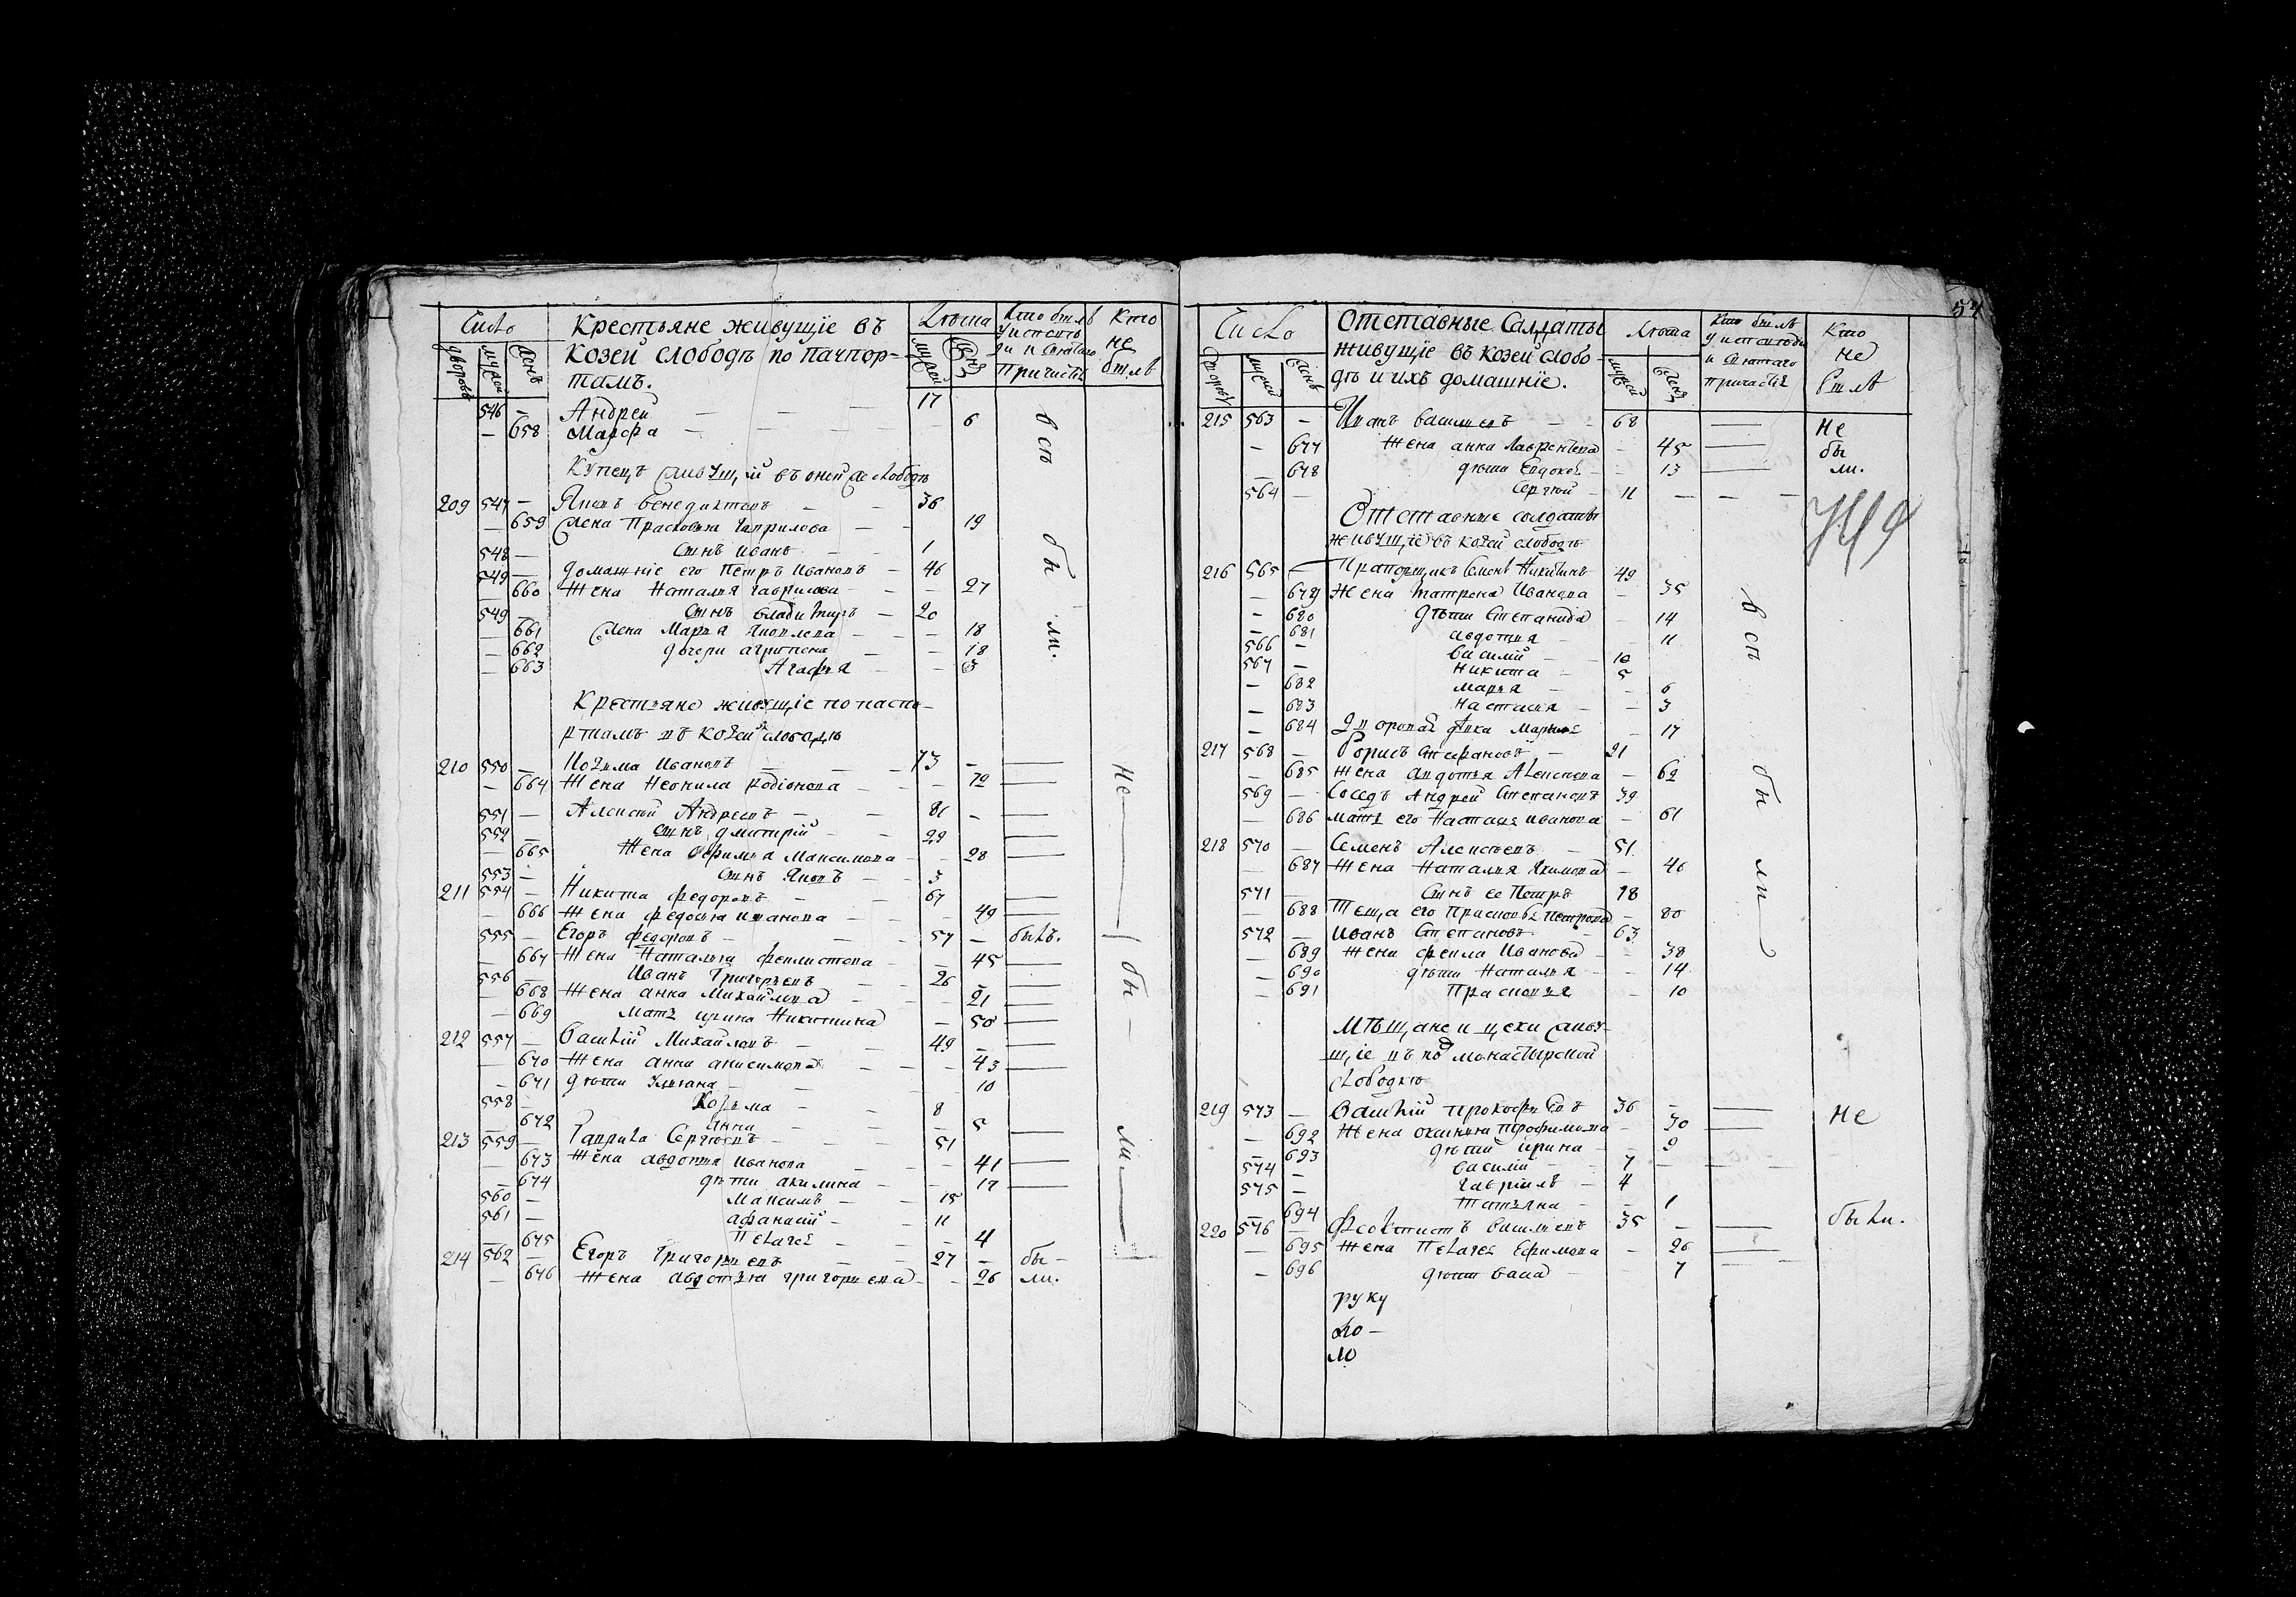 Число
Крестьяне живущїе въ
Козей слободѣ по пачпор-
тамъ.
Лѣта
Кто былъ у исповѣди и святаго причастїя
Кто не былъ
дворовъ мужеска женъ
мужей женъ
546 — Андрей — — — 17
— 658 Марфа — — — 6
Купецъ живущїй въ оной слободѣ
209 547 — Яковъ Венедиктовъ — — 36
— 659 жена Прасковья Гаврилова — — 19
548 — сынъ Иванъ — — 1
549 — домашнїе его Петръ Ивановъ — 46
— 660 жена Наталья Гаврилова — — 27
549 — сынъ Владимиръ — 20
— 661 жена Марья Яковлева — — 18
— 662 дочери агрипена — — 18
— 663 Агафья — —
все были.
Крестьяне живущїе по паспо-
ртамъ въ козей слободѣ
210 550 — Козма Ивановъ — — 73 —
— 664 жена Неонила Родїонова — — 72
551 — Алексѣй Андреевъ — — 81 —
552 — сынъ дмитрїй — — 29
— 665 жена Ефимья Максимова — — 28
553 — сынъ Яковъ — — 3
211 554 — Никита федоровъ — — 67
— 666 жена федосья иванова — — 49
555 — Егоръ федоровъ — — 57 — былъ.
— 667 жена Наталья феклистова — — 45
556 — Иванъ Григорьевъ — — 26 —
— 668 жена анна Михайлова — — 21
— 669 мать ирина Никитина — 50
212 557 — Василїй Михайловъ — — 49 —
— 670 жена анна анисимова — — 43
— 671 дѣти Ульяна — — 10
558 — Козьма — — 8
— 672 Анна — — 5
213 559 — Гаврила Сергѣевъ — — 51
— 673 жена авдотья иванова — — 41
— 674 дѣти акилина — — 17
560 — Максимъ — — 15
561 — афанасїй — — 11
— 675 Пелагея — — 4
214 562 — Егоръ Григорьевъ — — 27 — бы-
— 676 жена авдотья григорьева — — 26 ли.
Не — бы — ли
54
Число
Отставные Салдаты
живущїе въ козей слобо-
дѣ и ихъ домашнїе.
Лѣта
Кто былъ у исповѣди и святаго причастїя
Кто не былъ
215 563 — Иванъ васильевъ — — 68
— 677 жена анна Лаврентьева — 45
— 678 дѣти Евдокея — — 13
564 — Сергѣй — 11 — — —
Не
бы
ли.
Отставные солдаты
живущїе въ козей слободѣ
216 565 — Прапорщикъ Семенъ Никитинъ 49
— 679 жена Матрена Иванова — 35
— 680 дѣти Степанида — 14
— 681 авдотья — — 11
566 — василїй — — 10
567 — Никита — 5
— 682 марья — — 6
— 683 настасья — — 3
— 684 дворовая девка Марья — 17
217 568 — Борисъ Стефановъ — 21
— 685 жена авдотья Алексеева — 62
569 — Соседъ Андрей Степановъ 39
— 686 мать его Настасья иванова — 61
218 570 — Семенъ Алексѣевъ — 51
— 687 жена Наталья Якимова — 46
571 — сынъ ее Петръ 18
— 688 Теща его Прасковья Петрова — 80
572 — Иванъ Степановъ — 63
— 689 жена фекла Иванова — 38
— 690 дѣти Наталья — — 14
— 691 Прасковья — 10
все были
Мѣщане и цехи живу-
щїе въ подмонастырской
слободке
219 573 — Василїй прокофьевъ 36 —
— 692 жена оксинья Трофимова — 30
— 693 дѣти ирина — 9
574 — Василїй — — 7 — — —
575 — Гаврїилъ — 4
— 694 Татьяна — — 1
220 576 — Феоктистъ васильевъ 35 —
— 695 жена Пелагея Ефимова — 26
— 696 дѣти васа — — 7
Не
были.
руку
ло-
ло